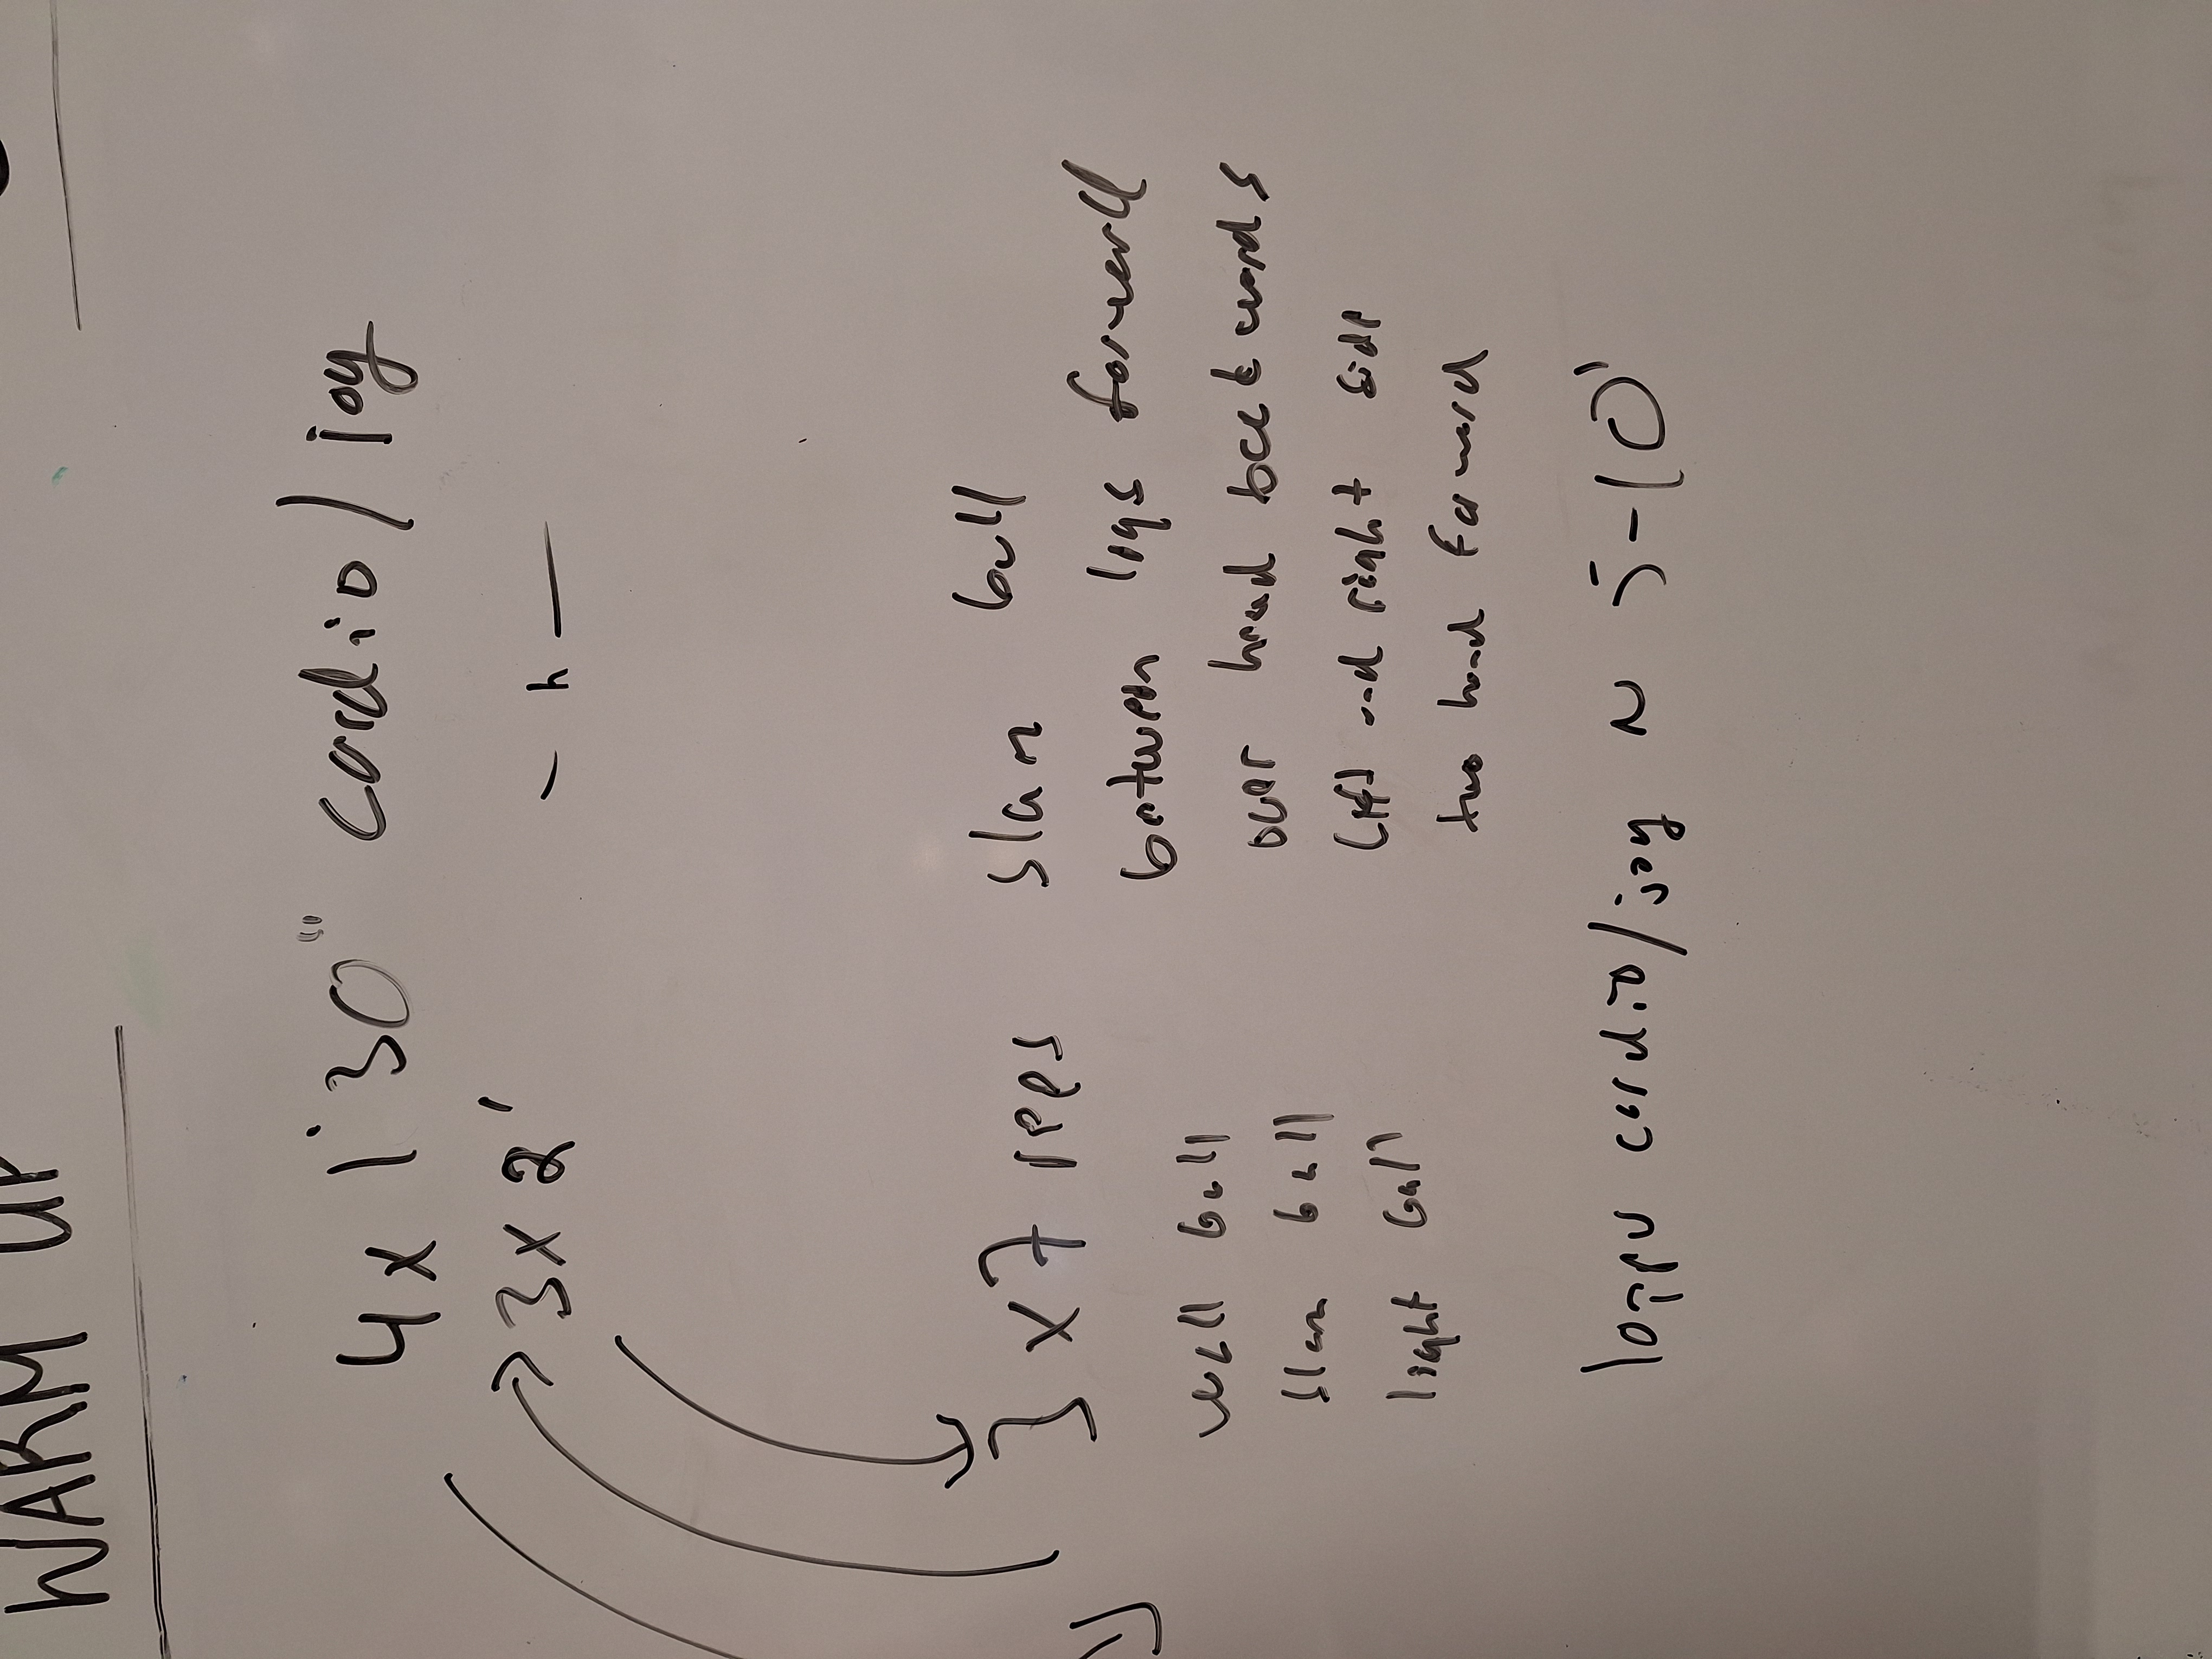 WARM UP
4 x 1'30" cardio / jog
3 x 2' - 11 -
3 x 7 reps slam ball
between legs forward
wall ball over head backwards
slam ball left and right side
light ball two hand forward
cardio/jog ~ 5-10'